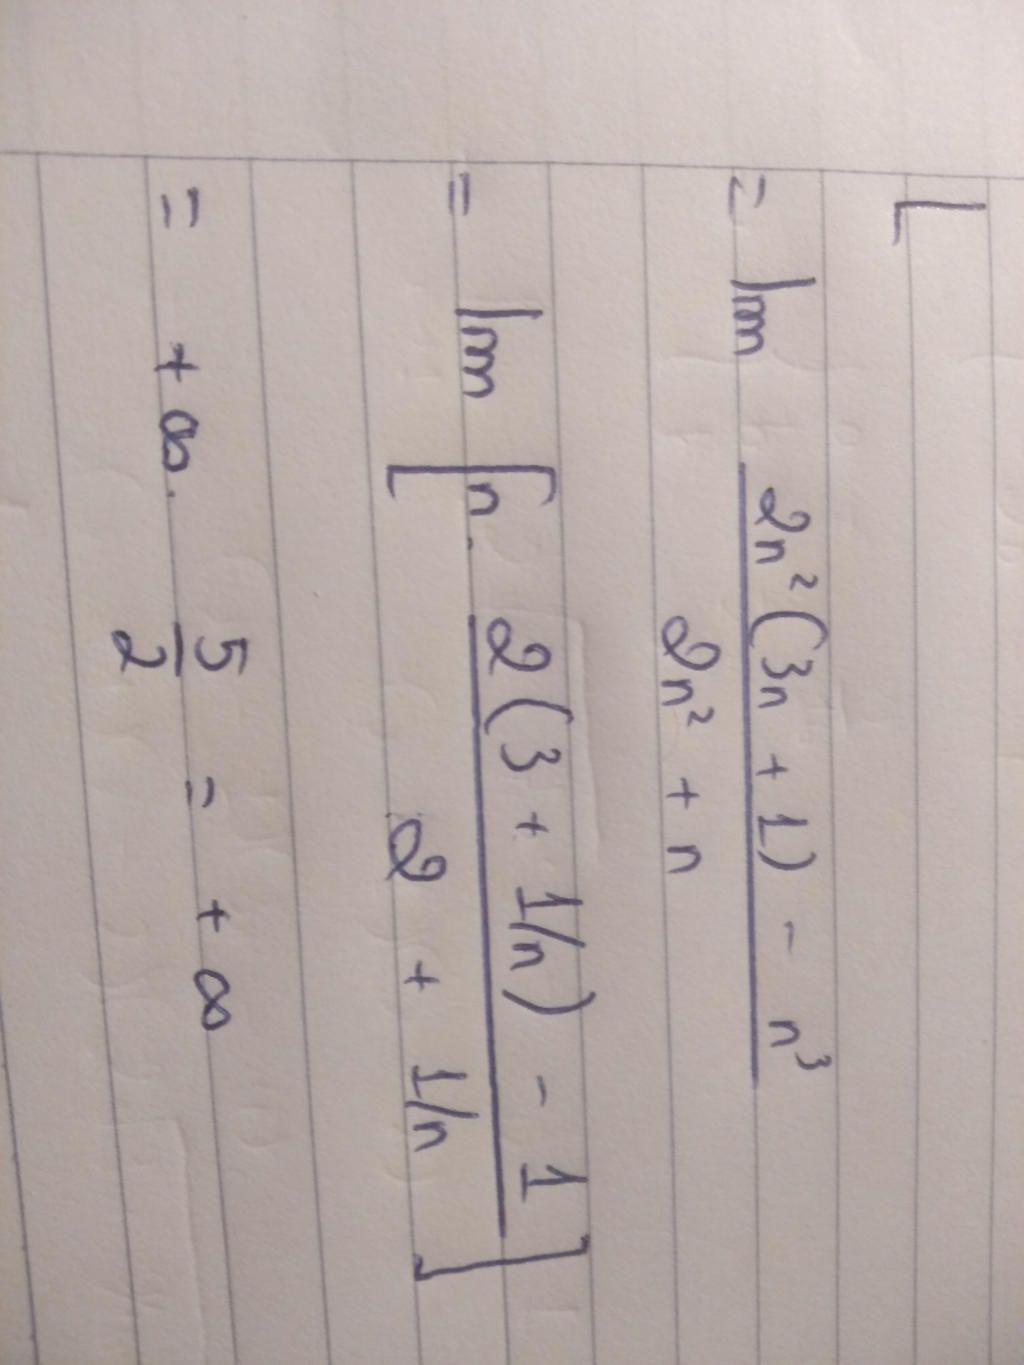 = lim (2n²(3n + 1) - n³)/(2n² + n)
= lim [n · (2(3 + 1/n) - 1)/(2 + 1/n)]
= +∞ · 5/2 = +∞